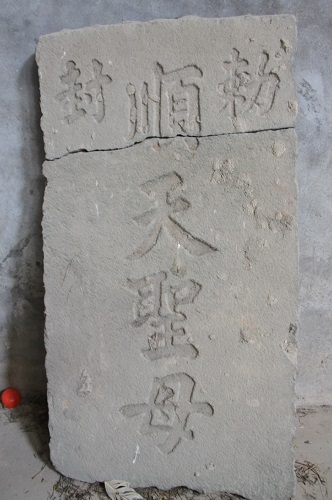 勅封
順天聖母